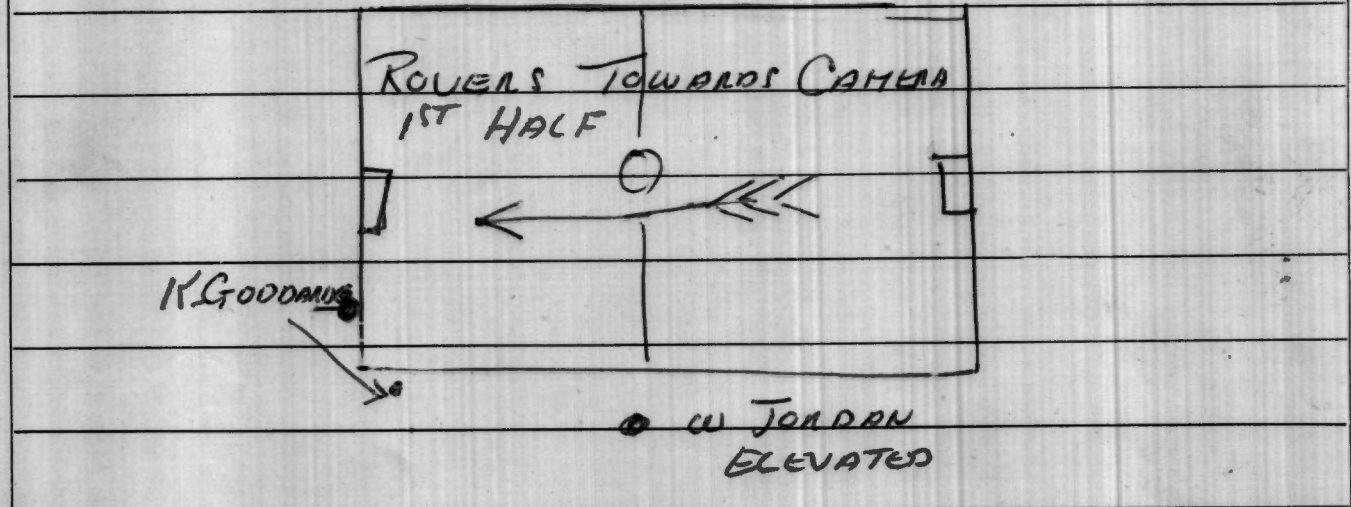 ROVERS TOWARDS CAMERA
1ST HALF
K.GOODARD
W JORDAN
ELEVATED